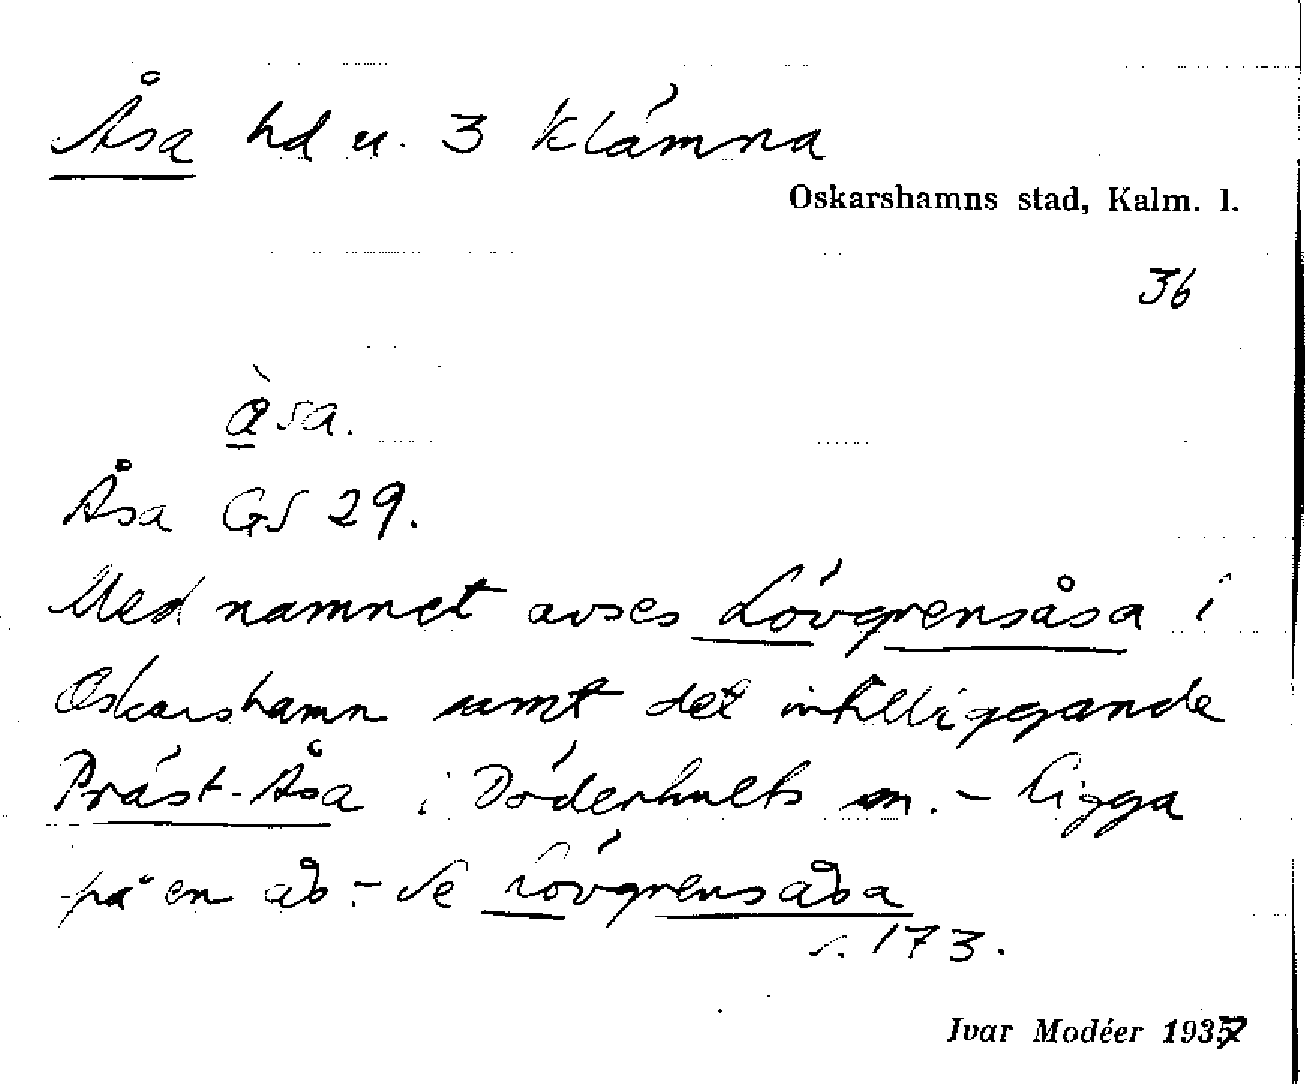 Åsa hd u. 3 klämna
Oskarshamns stad, Kalm. l.
36
åsa.
Åsa GS 29.
Med namnet avses Lövgrensåsa i
Oskarshamn samt det intilliggande
Präst-Åsa i Döderhults sn. - Ligga
på en ås. - Se Lövgrensåsa
s. 173.
Ivar Modéer 1937